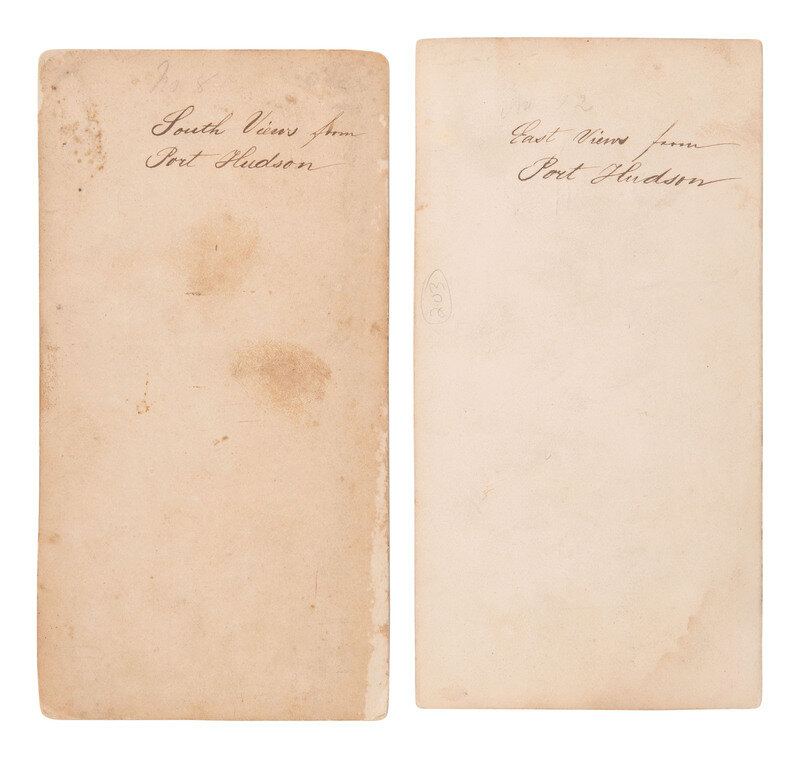 No 8
South Views from
Port Hudson
No 12
East Views from
Port Hudson
203